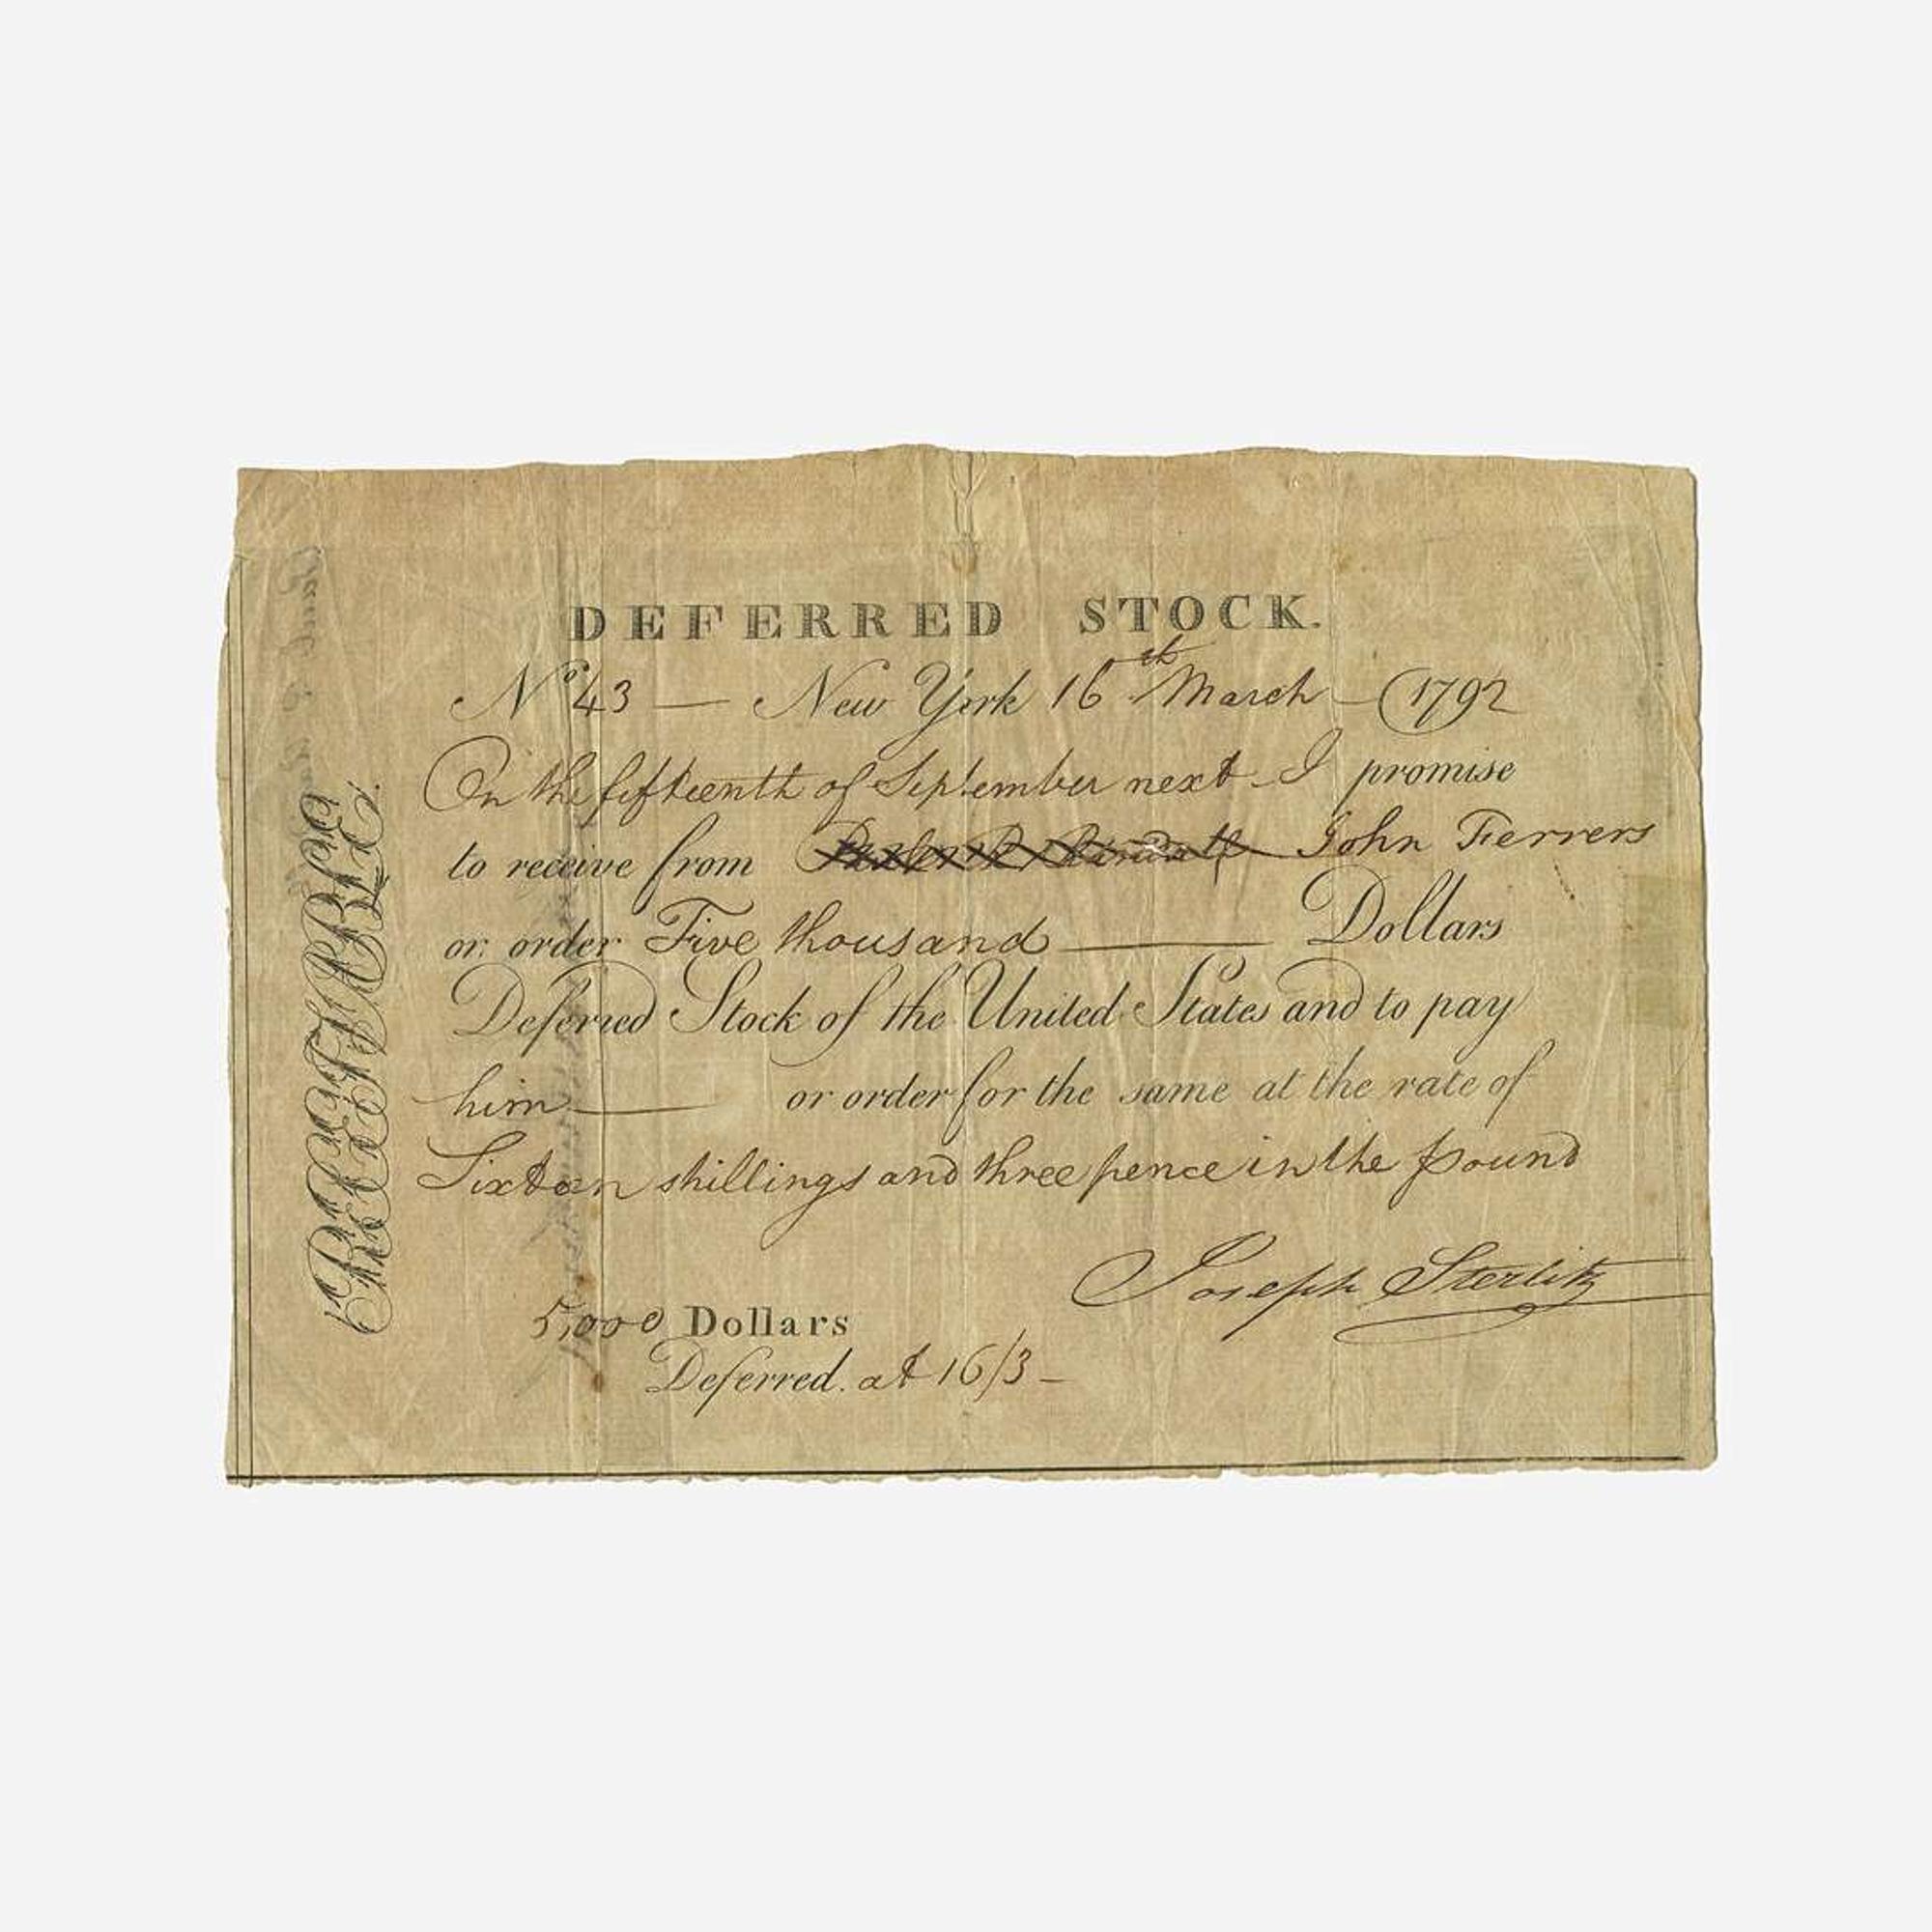 DEFERRED STOCK.
No 43 — New York 16th March — 1792
On the fifteenth of September next I promise
to receive from John Ferrers
or order Five thousand — Dollars
Deferred Stock of the United States and to pay
him — or order for the same at the rate of
Sixteen shillings and three pence in the pound
Joseph Sterlitz
5,000 Dollars
Deferred. at 16/3 –
RECEIVABLE.